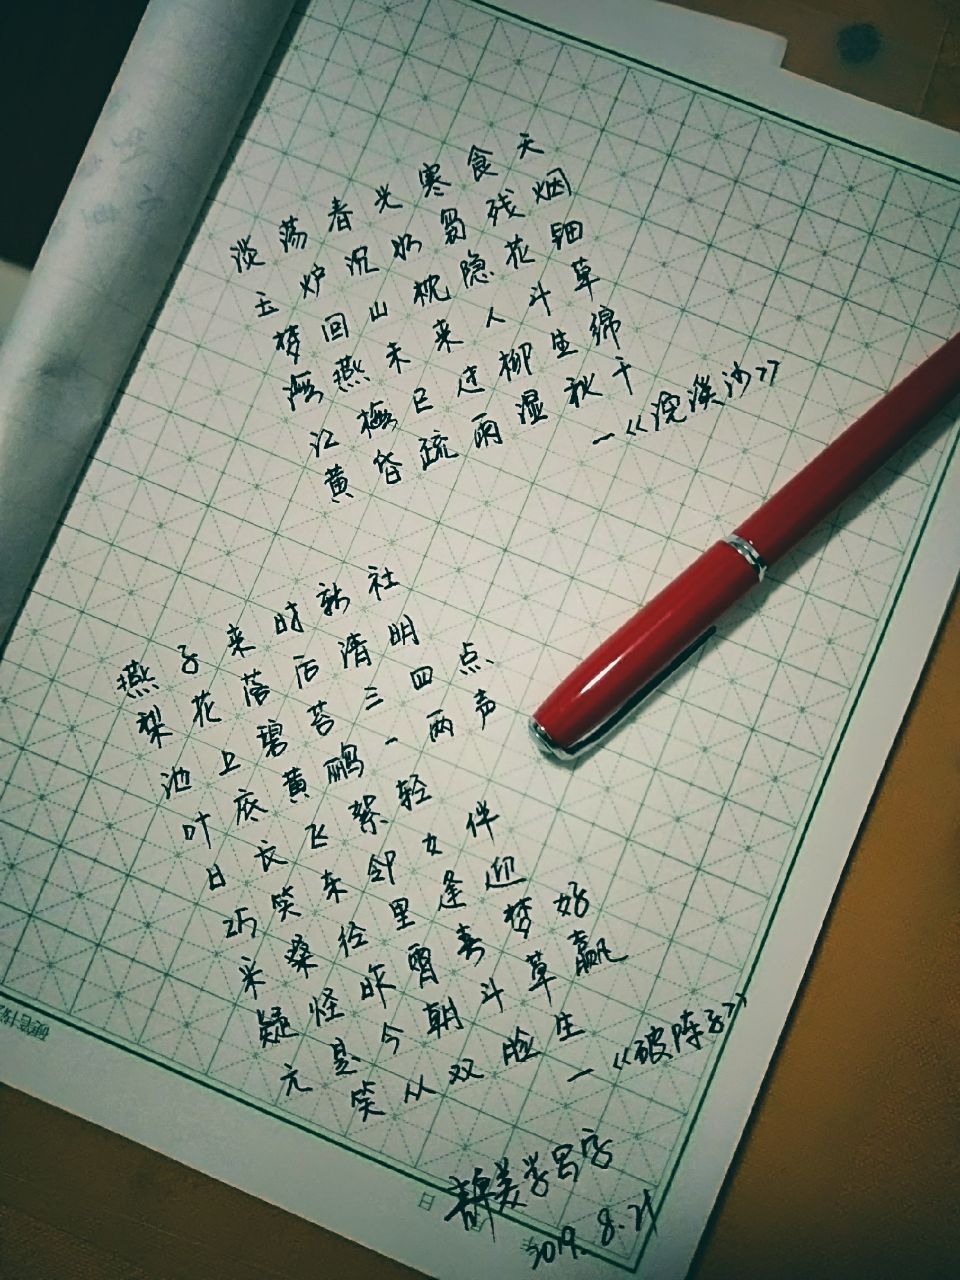 淡荡春光寒食天
玉炉沉水袅残烟
梦回山枕隐花钿
海燕未来人斗草
江梅已过柳生绵
黄昏疏雨湿秋千
—《浣溪沙》
燕子来时新社
梨花落后清明
池上碧苔三四点
叶底黄鹂一两声
日长飞絮轻
巧笑东邻女伴
采桑径里逢迎
疑怪昨宵春梦好
元是今朝斗草赢
笑从双脸生
—《破阵子》
2019.8.21
日